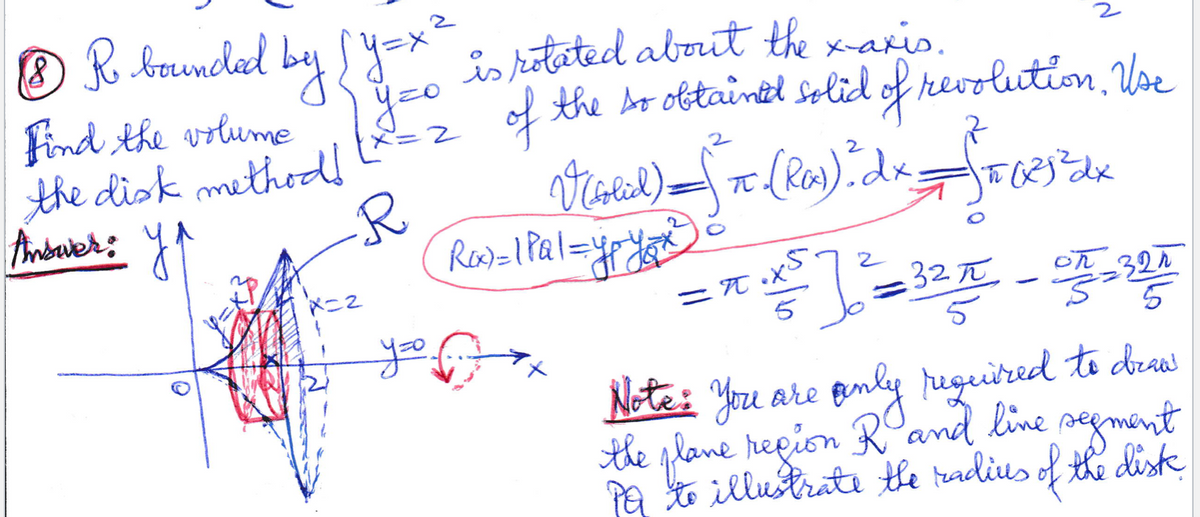 2
⑧ R bounded by { y=x² is rotated about the x-axis.
y=0
x=2
Find the volume of the so obtained solid of revolution. Use
the disk method!
V(solid)=∫₀² π.(R(x))².dx=∫₀² π(x²)²dx
Answer: y R
R(x)=|PQ|=yP-yQ=x²
=π.x⁵/5]₀²=32π/5 - 0π/5=32π/5
y=x² P x=2
y=0
0 Q 2 x
Note: You are only required to draw
the plane region R and line segment
PQ to illustrate the radius of the disk.